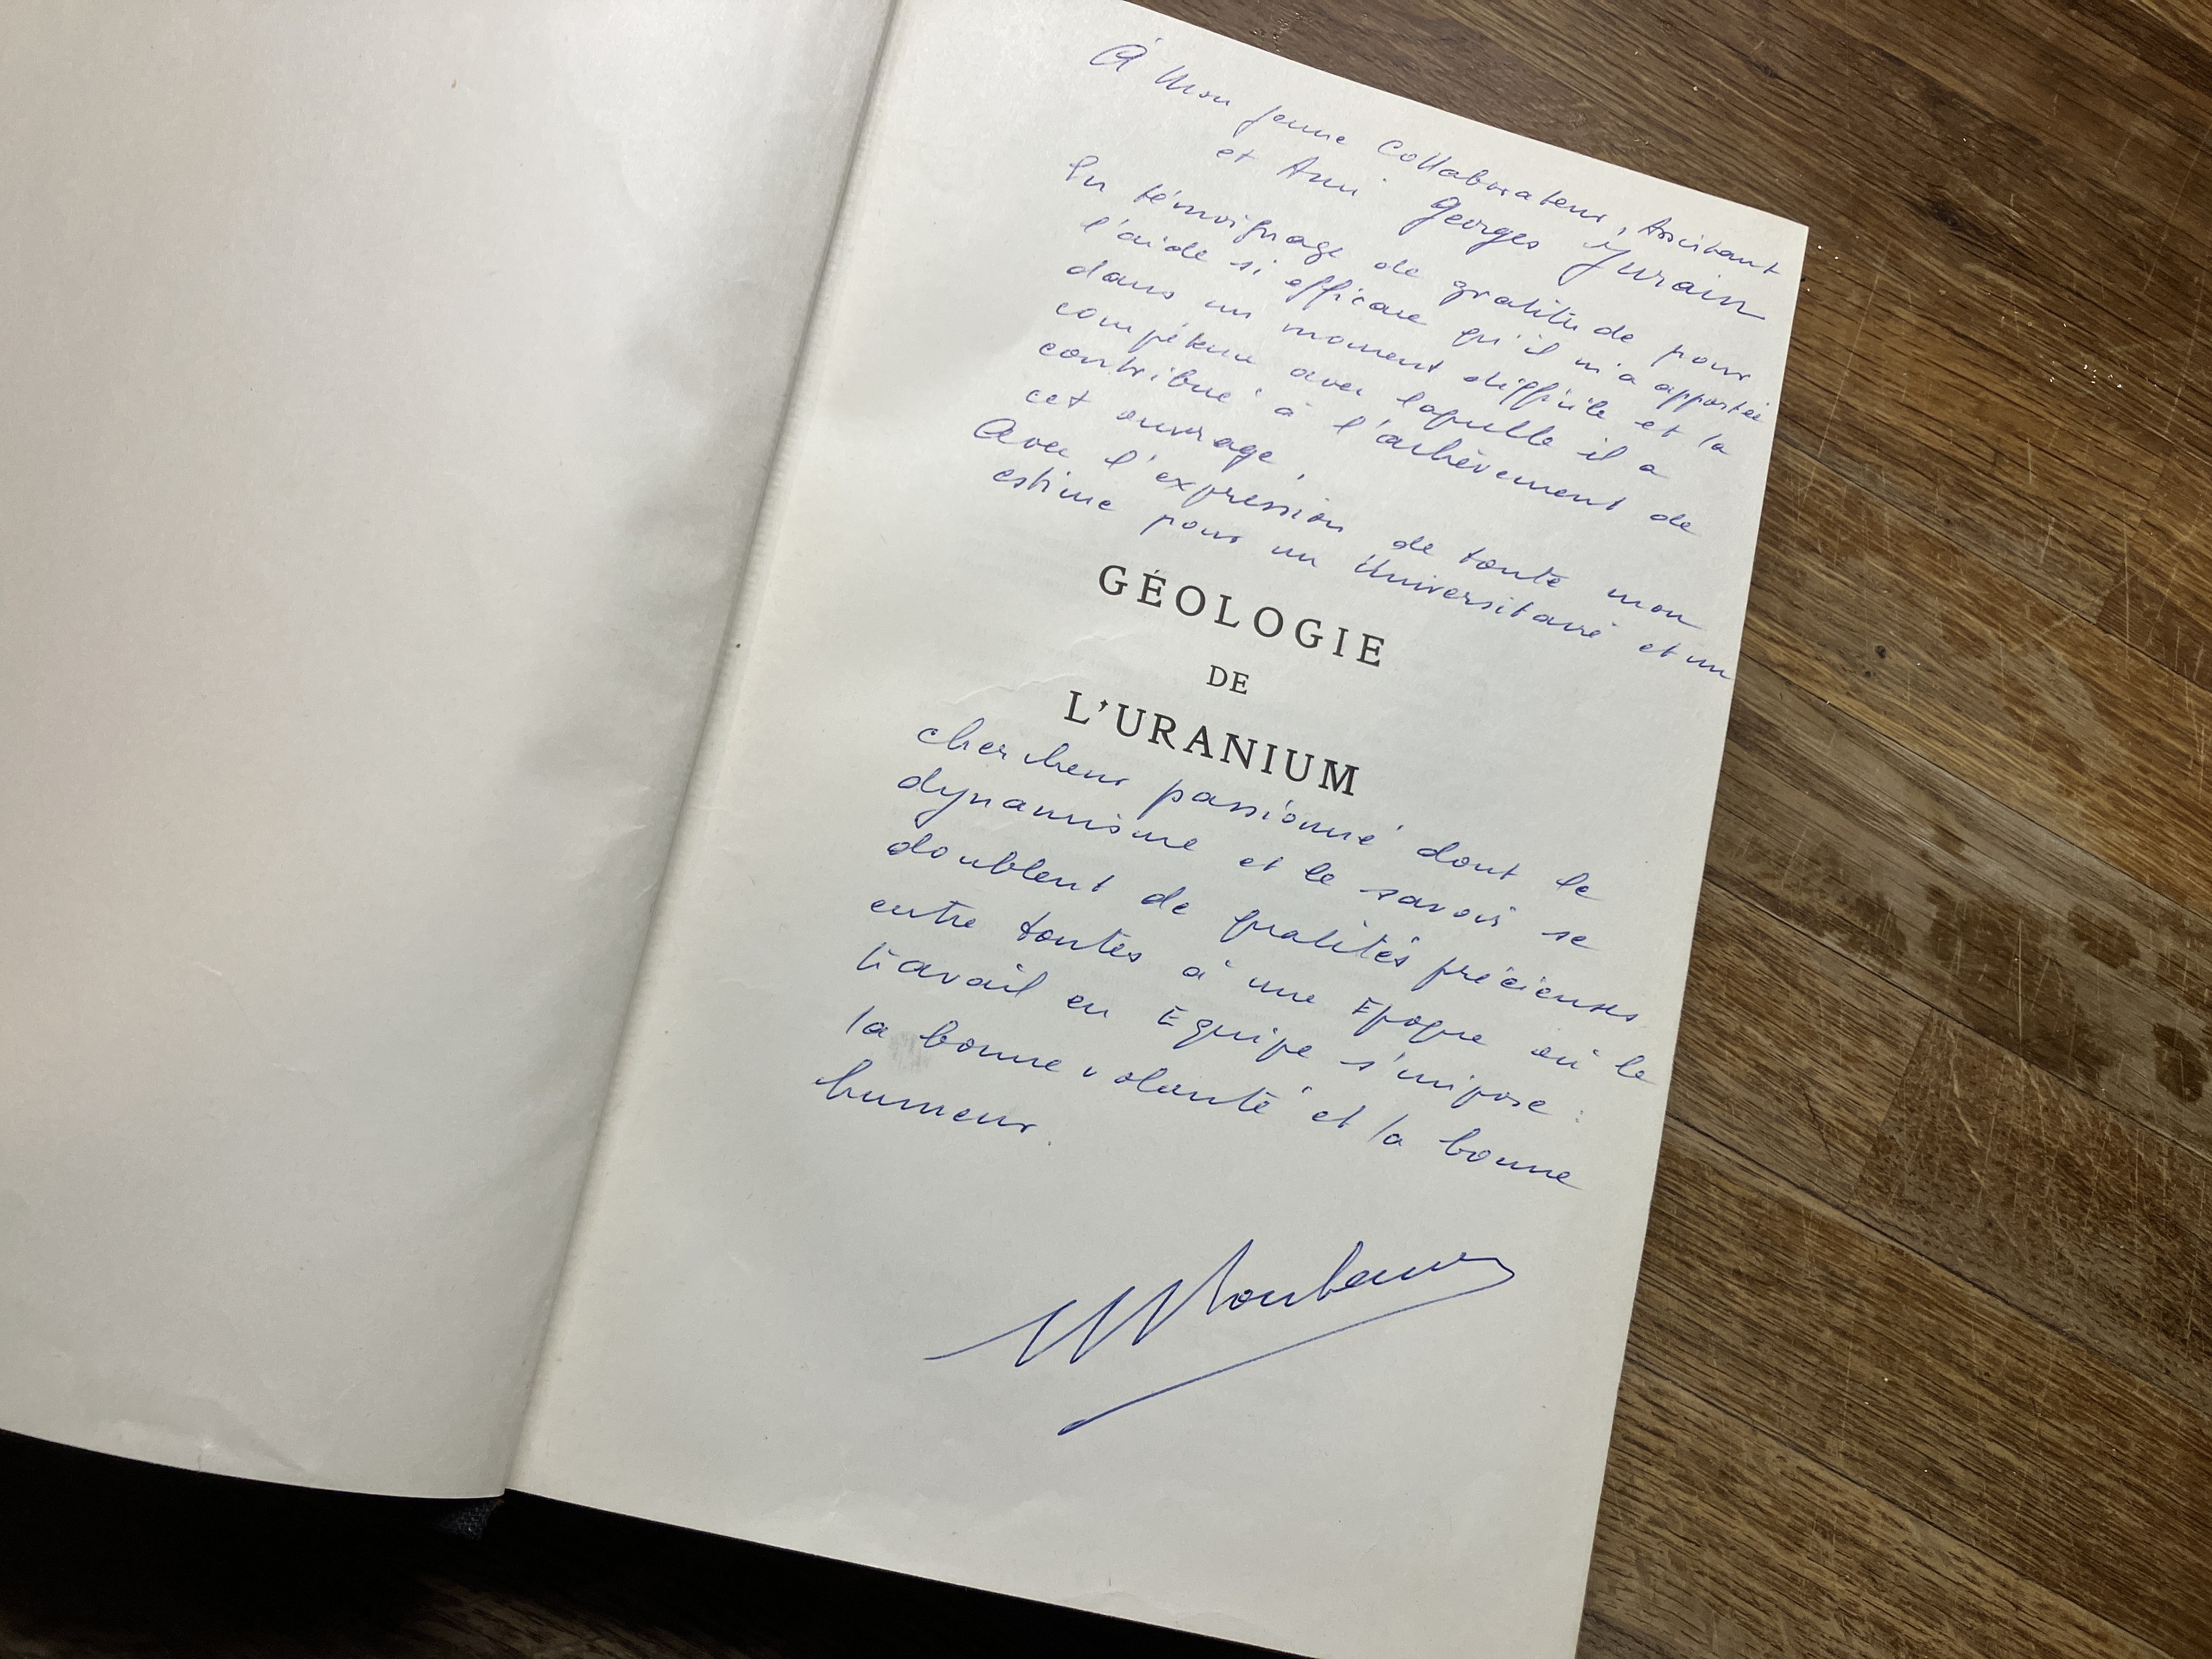 A Mon jeune Collaborateur, Assistant
et Ami Georges Jurain
En témoignage de gratitude pour
l'aide si efficace qu'il m'a apportée
dans un moment difficile et la
compétence avec laquelle il a
contribué à l'achèvement de
cet ouvrage,
Avec l'expression de toute mon
estime pour un Universitaire et un
GÉOLOGIE
DE
L'URANIUM
chercheur passionné dont le
dynamisme et le savoir se
doublent de qualités précieuses
entre toutes à une Epoque où le
travail en Equipe s'impose :
la bonne volonté et la bonne
humeur.